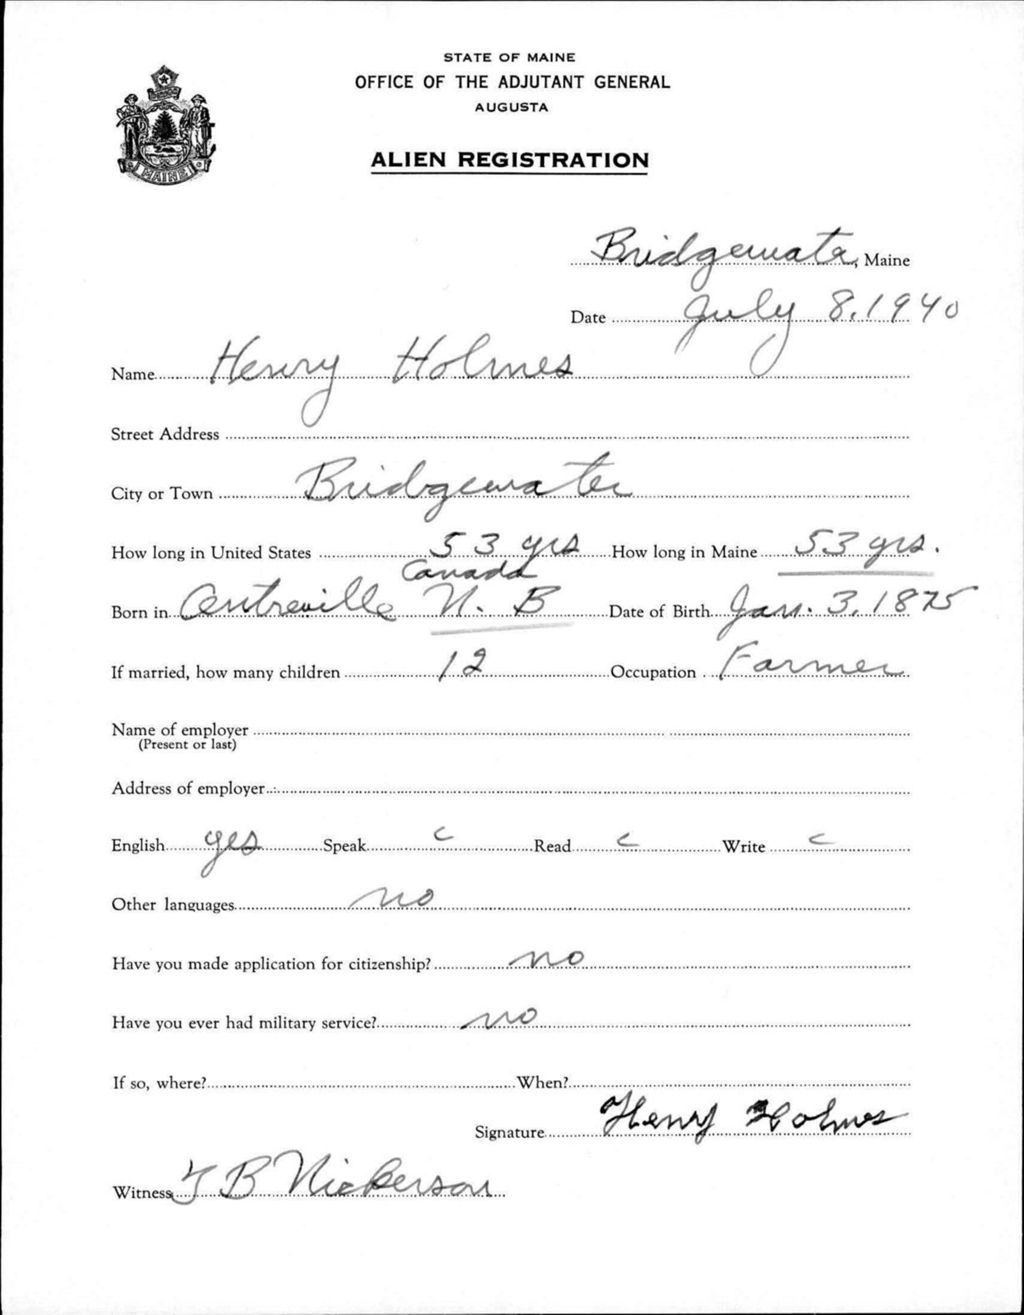 STATE OF MAINE
OFFICE OF THE ADJUTANT GENERAL
AUGUSTA
ALIEN REGISTRATION
MAINE
Bridgewater, Maine
Date July 8, 1940
Name Henry Holmes
Street Address
City or Town Bridgewater
How long in United States 53 yrs How long in Maine 53 yrs.
Canada
Born in Centreville N. B Date of Birth Jan. 3, 1875
If married, how many children 12 Occupation Farmer
Name of employer
(Present or last)
Address of employer
English yes Speak c Read c Write c
Other languages no
Have you made application for citizenship? no
Have you ever had military service? no
If so, where? When?
Signature Henry Holmes
Witness B Nickerson